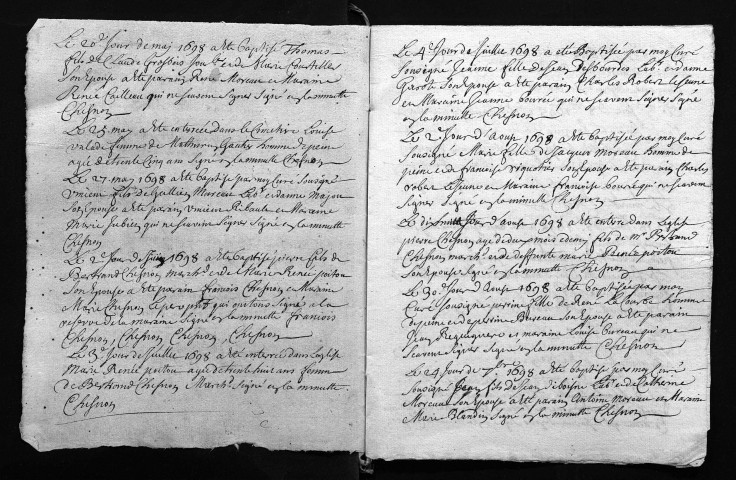 Le 20e Jour de may 1698 a ete baptisé Thomas
fils de Claude Crosbois son pere et de Marie
son Epouse a ete parain René Moreau et Maraine
Renée Cailleau qui ne scavent signer Signé en la minutte
Chesnon
Le 25 may a ete enterrée dans le Cimetiere Louise
Valade femme de Mathurin Gautier homme de peine
agée de trente cinq ans Signé en la minutte Chesnon
Le 27 may 1698 a ete baptisé par moy Curé sousigné
fils de Moreau Labr et de anne
son Epouse a ete parain Ribault et Maraine
Marie qui ne scavent signer Signé en la minutte
Chesnon
Le 2e Jour de 1698 a ete baptisé pierre fils de
Bertrand Chesnon march et de Marie Renée poitou
son Epouse a ete parain francois Chesnon et Maraine
Marie Chesnon qui ont tous signés a la
reserve de la maraine Signé en la minutte francois
Chesnon, Chesnon, Chesnon, Chesnon
Le 3e Jour de Juillet 1698 a ete enterrée dans Leglise
Marie Renée poitou agée de trente huit ans femme
de Bertrand Chesnon March Signé en la minutte
Chesnon
Le 4e Jour de Juillet 1698 a eté Baptisée par moy Curé
sousigné Jeanne fille de Jean Desbordes Labr et danne
son Epouse a ete parain Charles Robert Lejeune
en Maraine Jeanne bourée qui ne scavent signer Signé
en la minutte Chesnon
Le 2e Jour d'aout 1698 a ete baptisée par moy Curé
Sousigné Marie fille de Jacques Moreau homme de
peine et de francoise son Epouse a ete parain Charles
robert Lejeune en Maraine francoise bourée qui ne scavent
signer Signé en la minutte Chesnon
Le Jour d'aout 1698 a ete enterré dans Leglise
pierre Chesnon agé de deux mois et demy fils de Mr Bertrand
Chesnon march et de deffunte marie Renée poitou
son Epouse Signé en la minutte Chesnon
Le 30e Jour d'aout 1698 a ete baptisée par moy
Curé sousigné perrine fille de René La barbe homme
de peine et de perrine Bureau son Epouse a ete parain
Jean et maraine Louise bureau qui ne
scavent signer Signé en la minutte Chesnon
Le 24 Jour de 7bre 1698 a ete baptisé par moy Curé
Sousigné Jean fils de Jean Labr et de Catherine
Moreau son Epouse a ete parain Antoine Moreau et Maraine
Marie Blandin Signé en la minutte Chesnon